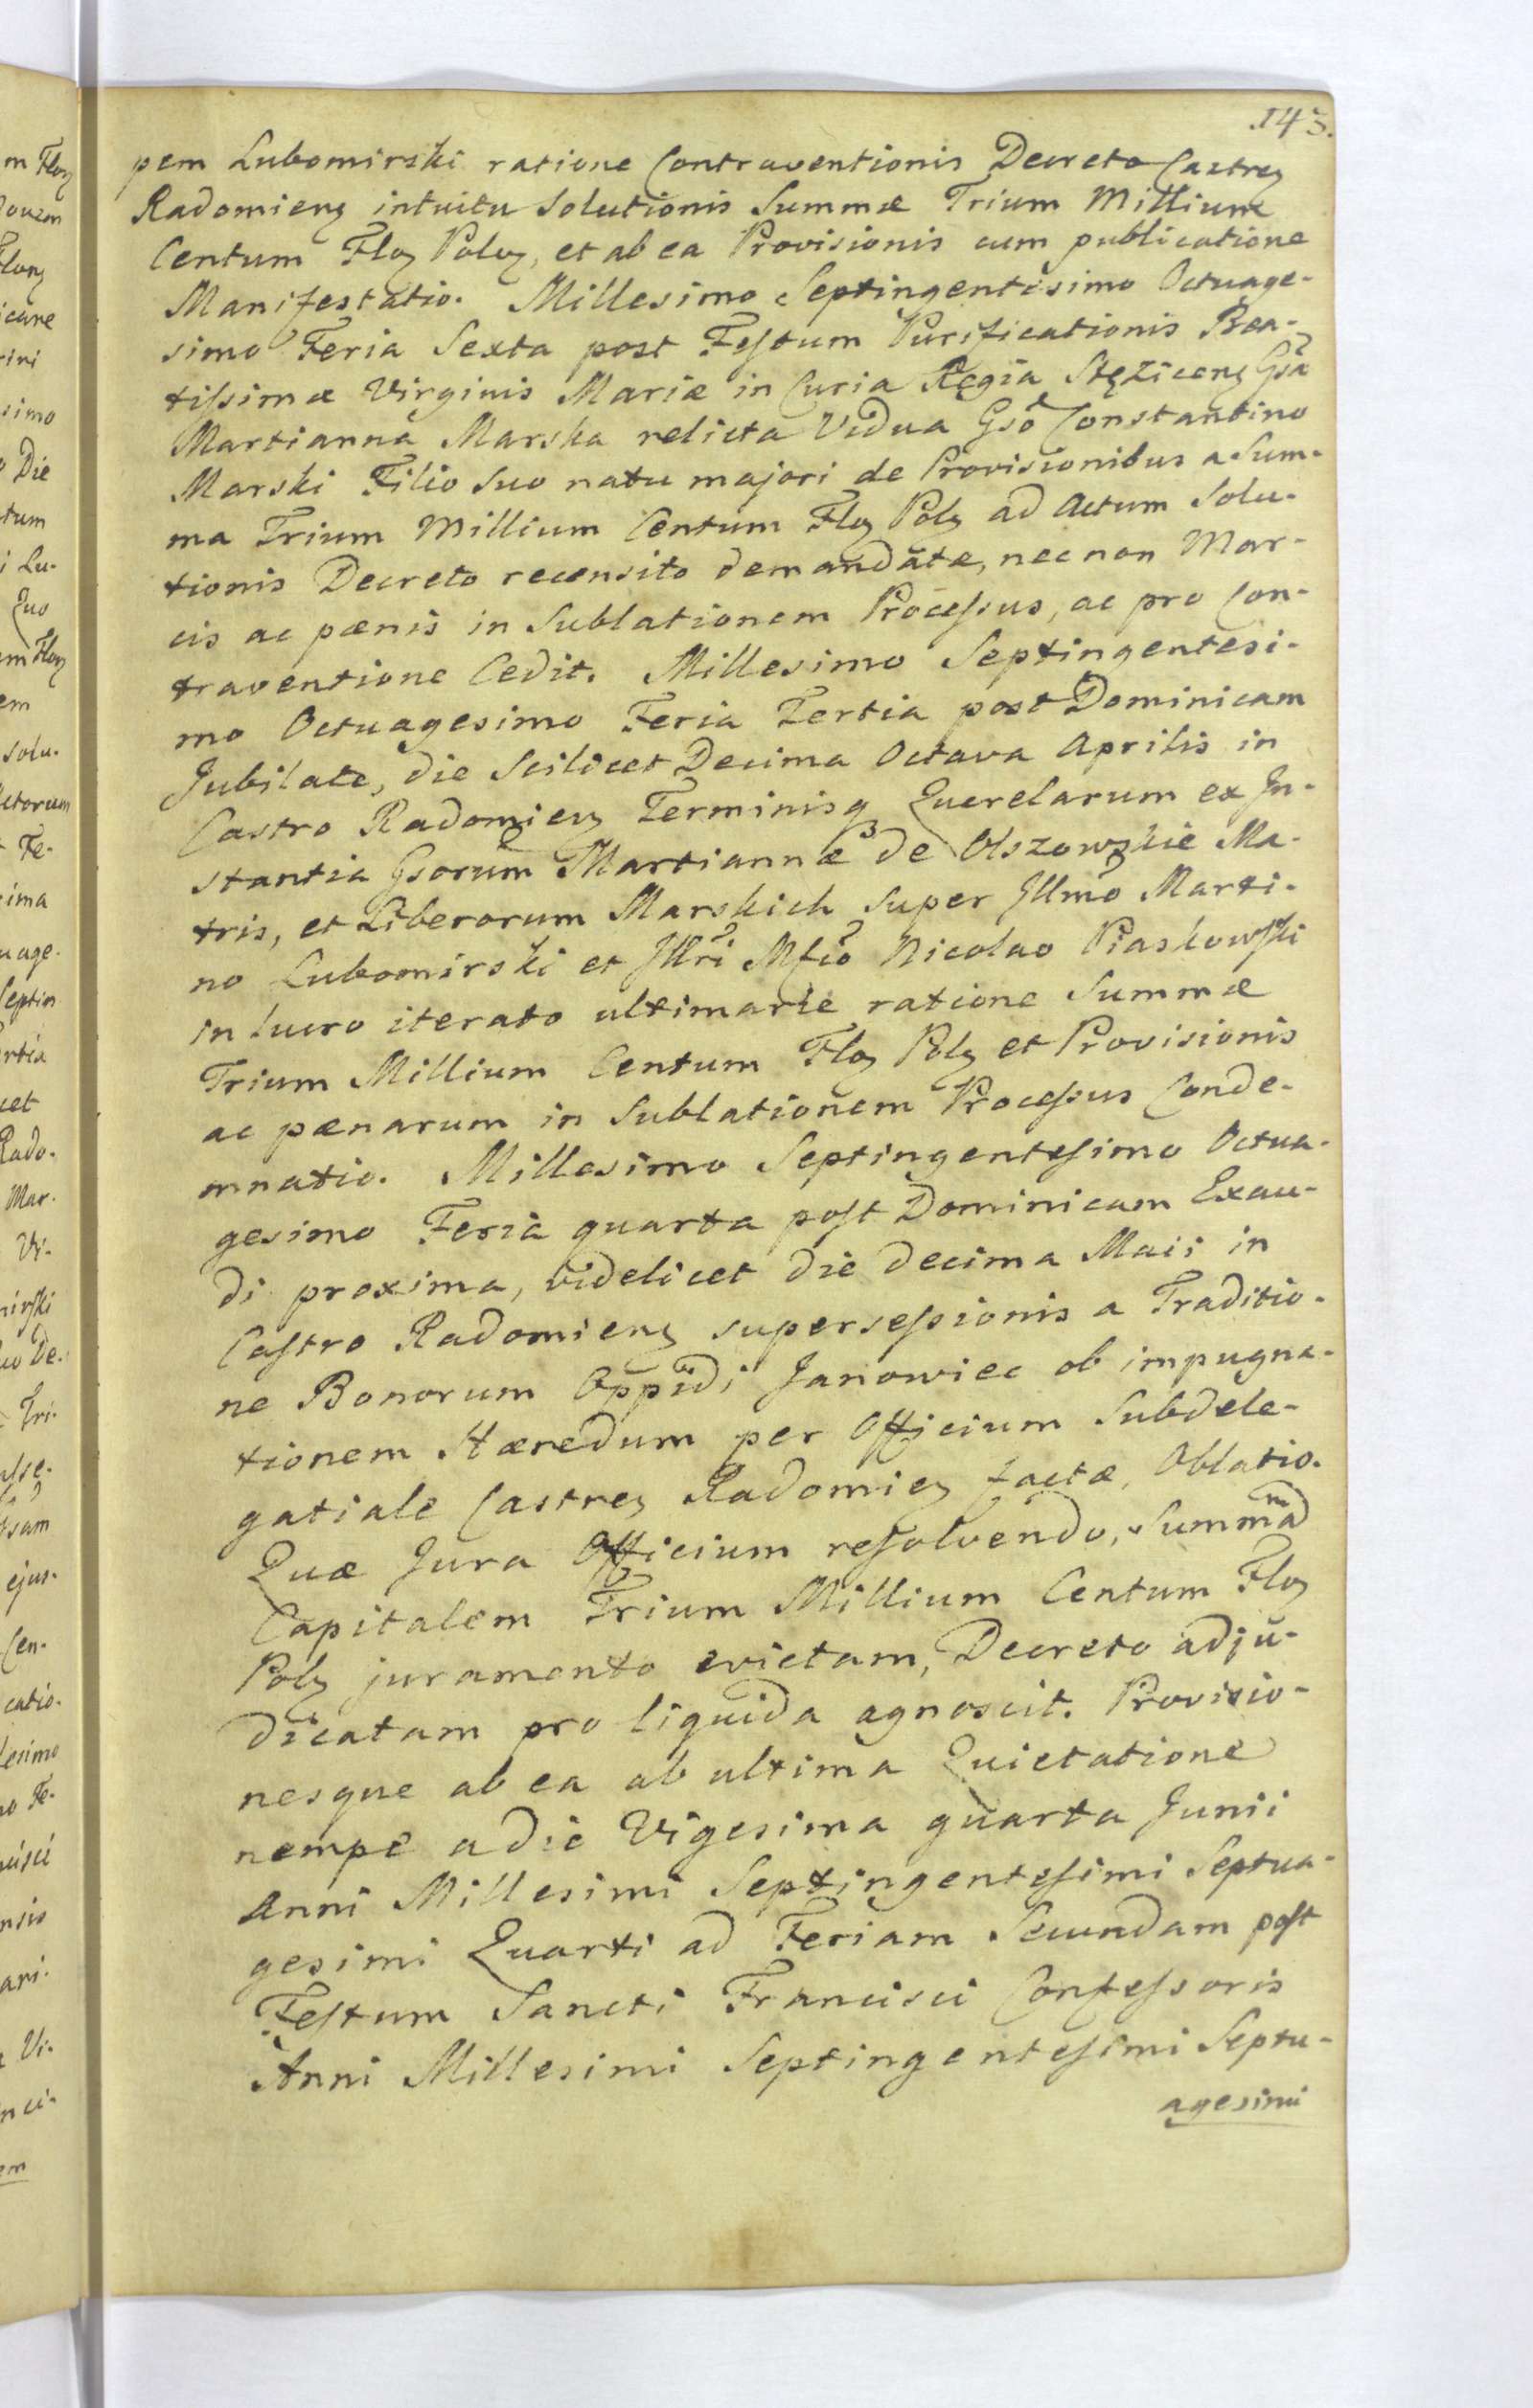 143.
pem Lubomirski ratione Contraventionis Decreto Castreÿ
Radomienÿ intuitu Solutionis Summæ Trium Millium
Centum Floÿ Poloÿ, et ab ea Provisionis cum publicatione
Manifestatio. Millesimo Septingentesimo Octuage-
simo Feria Sexta post Festum Purificationis Bea-
tissimæ Virginis Mariæ in Curia Regia Stęzicenÿ Gsa
Martianna Marska relicta Vidua Gso Constantino
Marski Filio Suo natu majori de Provisionibus a Sum-
ma Trium Millium Centum Floÿ Polÿ ad Actum Solu-
tionis Decreto recensito demandatæ, nec non Mar-
cis ac pænis in Sublationem Processus, ac pro Con-
traventione Cedit. Millesimo Septingentesi-
mo Octuagesimo Feria Tertia post Dominicam
Jubilate, die Scilicet Decima Octava Aprilis in
Castro Radomienÿ Terminisq Querelarum ex In-
stantia Gsorum Martiannæ de Olszowskie Ma-
tris, et Liberorum Marskich super Illmo Marti-
no Lubomirski et Illri Mfco Nicolao Piaskowski
in lucro iterato ultimarie ratione Summæ
Trium Millium Centum Floÿ Polÿ et Provisionis
ac pænarum in Sublationem Processus Conde-
mnatio. Millesimo Septingentesimo Octua-
gesimo Feria quarta post Dominicam Exau-
di proxima, videlicet die decima Maii in
Castro Radomienÿ supersessionis a Traditio-
ne Bonorum Oppidi Janowiec ob impugna-
tionem Hæredum per Officium Subdele-
gatiale Castreÿ Radomieÿ factæ, Oblatio.
Quæ Jura Officium resolvendo, Summam
Capitalem Trium Millium Centum Floÿ
Polÿ juramento evictam, Decreto adju-
dicatam pro liquida agnoscit. Provisio-
nesque ab ea ab ultima Quietatione
nempe a die Vigesima quarta Junii
Anni Millesimi Septingentesimi Septua-
gesimi Quarti ad Feriam Secundam post
Festum Sancti Francisci Confessoris
Anni Millesimi Septingentesimi Septu-
agesimi